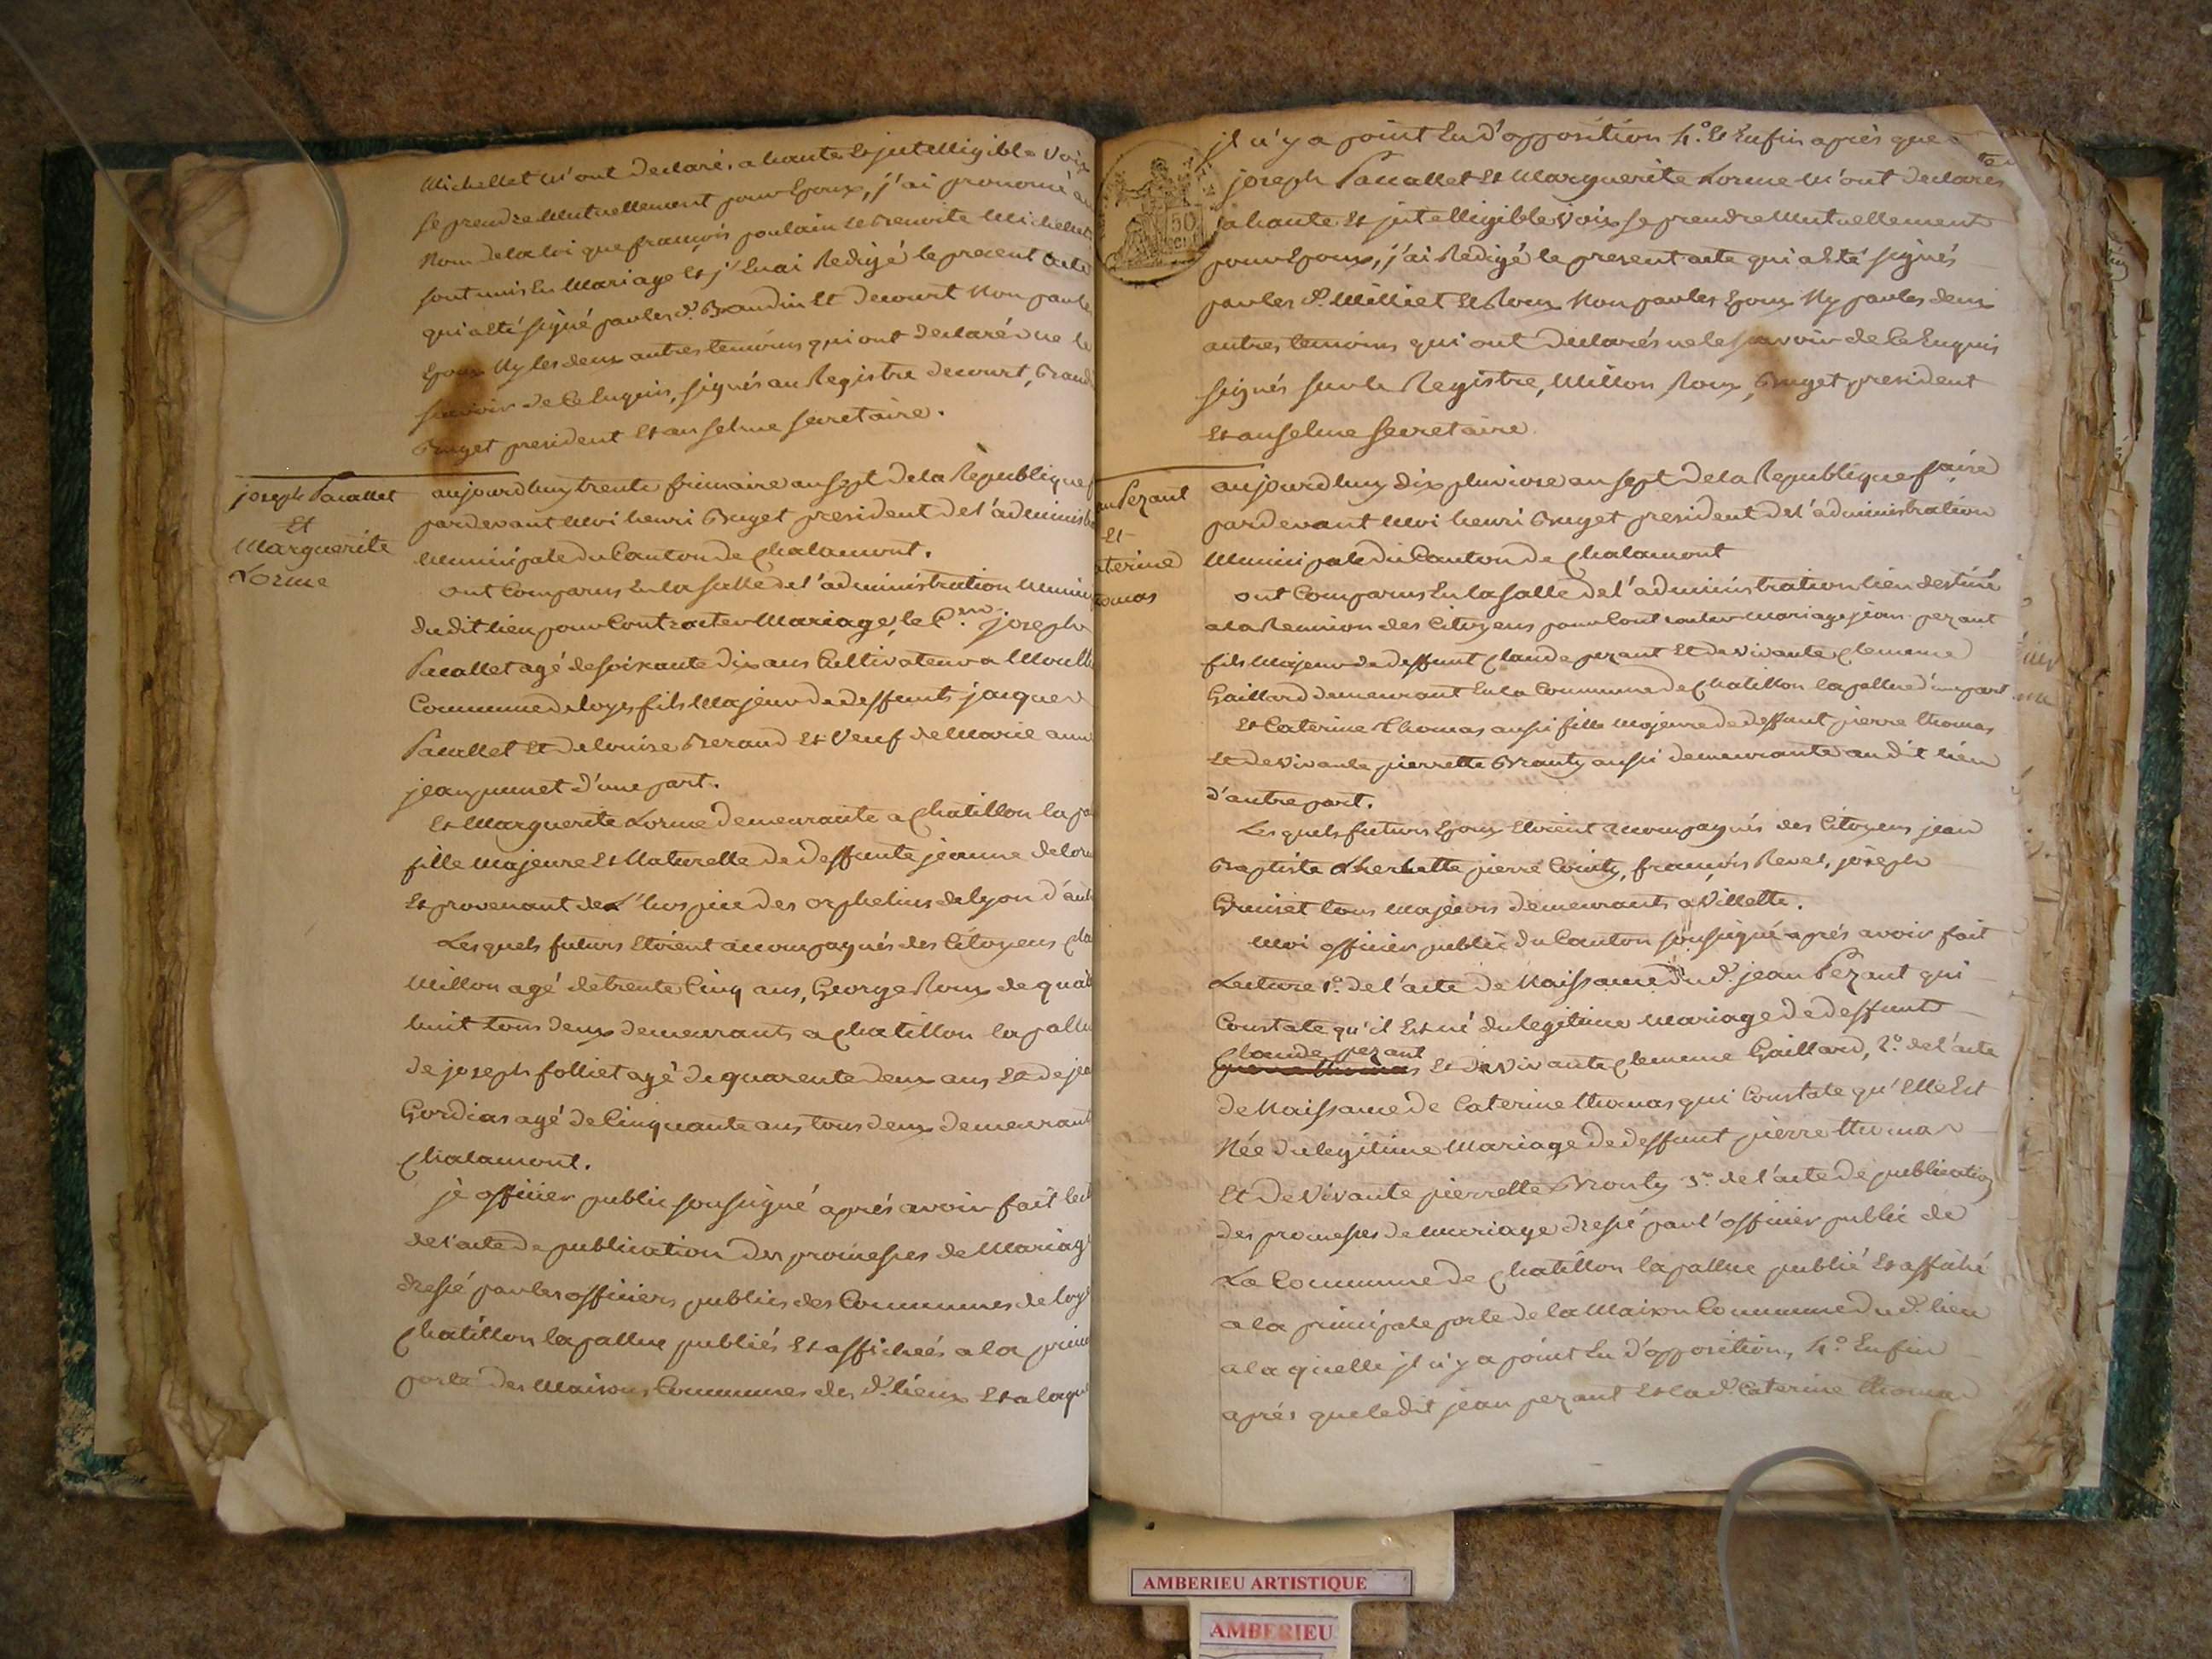 Michellet m'ont declaré, a haute et jntelligible voix
se prendre mutuellement pour Epoux, j'ai prononcé au
Nom de la loi que françois poulain et Benoite Michellet
sont unis En Mariage et j'En ai Redigé le precent acte
qui a Eté signé par les d. Baudin et decourt Non par les
Epoux Ny les deux autres temoins qui ont declaré ne le
scavoir de ce Enquis, signés au Registre decourt,
Bruget president Et anselme secretaire.
joseph Pacallet
Et
Marguerite
Lorme
aujourdhuy trente frimaire an sept de la Republique
pardevant Moi henri Bruget president de l'administ
Municipale du Canton de Chalamont.
ont Comparus En la salle de l'administration Munici
du dit lieu pour Contracter Mariage, le C.en joseph
Pacallet agé de soixante dix ans Cultivateur a
Commune de loyes fils Majeur de deffunts jacques
Pacallet Et de louise Beraud Et Veuf de Marie anne
d'une part.
Et Marguerite Lorme demeurante a Chatillon la pa
fille Majeure Et Naturelle de deffunte jeanne delor
Et provenant de L'hospice des orphelins de lyon d'aut
Lesquels futurs Etoient accompagnés des Citoyens cla
Millon agé de trente Cinq ans, George Roux de quara
huit tous deux demeurants a Chatillon la pallu
de joseph folliet agé de quarente deux ans Et de jea
Gordias agé de Cinquante ans tous deux demeurant
Chalamont.
je officier public soussigné aprés avoir fait lect
de l'acte de publication des promesses de Mariage
dressé par les officiers publics des Communes de loye
Chatillon la pallue publiés Et affichées a la princi
porte des Maisons Communes des d. lieux Et a laque
jl n'y a point Eu d'opposition 4.° Et Enfin aprés que
joseph Pacallet Et Marguerite Lorme m'ont declarés
a haute Et jntelligible voix se prendre Mutuellement
pour Epoux, j'ai Redigé le present acte qui a Eté signés
par les d. Milliet Et Roux Non par les Epoux Ny par les deux
autres temoins qui ont declarés ne le scavoir de ce Enquis
signés sur le Registre, Millon, Roux, Bruget president
Et anselme secretaire
an Pezant
Et
aterine
omas
aujourdhuy dix pluviose an sept de la Republique faire
pardevant Moi henri Bruget president de l'administration
Municipale du Canton de Chalamont
ont Comparus En la salle de l'administration lieu destiné
a la Reunion des Citoyens pour Contracter mariage jean pezant
fils Majeur de deffunt Claude pezant Et de vivante Clemence
Gaillard demeurant En la Commune de Chatillon la pallue d'une part
Et Caterine Thomas aussi fille Majeure de deffunt pierre thomas
Et de vivante pierrette Brouty aussi demeurante au dit lieu
d'autre part.
Lesquels futurs Epoux Etoient accompagnés des Citoyens jean
Baptiste pierre Cointy, françois Revel, joseph
tous Majeurs demeurants a Villette.
Moi officier public du Canton soussigné aprés avoir fait
Lecture 1.° de l'acte de Naissance du d. jean Pezant qui
Constate qu'il Est né du legitime Mariage de deffunt
Claude pezant
Et de vivante Clemence Gaillard, 2.° de l'acte
de Naissance de Caterine thomas qui Constate qu'Elle Est
Née du legitime Mariage de deffunt pierre thomas
Et de vivante pierrette Brouty 3.° de l'acte de publication
des promesses de mariage dressé par l'officier public de
La Commune de Chatillon la pallue publié Et affiché
a la principale porte de la Maison Commune du d. lieu
a la quelle jl n'y a point Eu d'opposition, 4.° Enfin
aprés que le dit jean pezant Et la d. Caterine thomas
50
AMBERIEU ARTISTIQUE
AMBERIEU